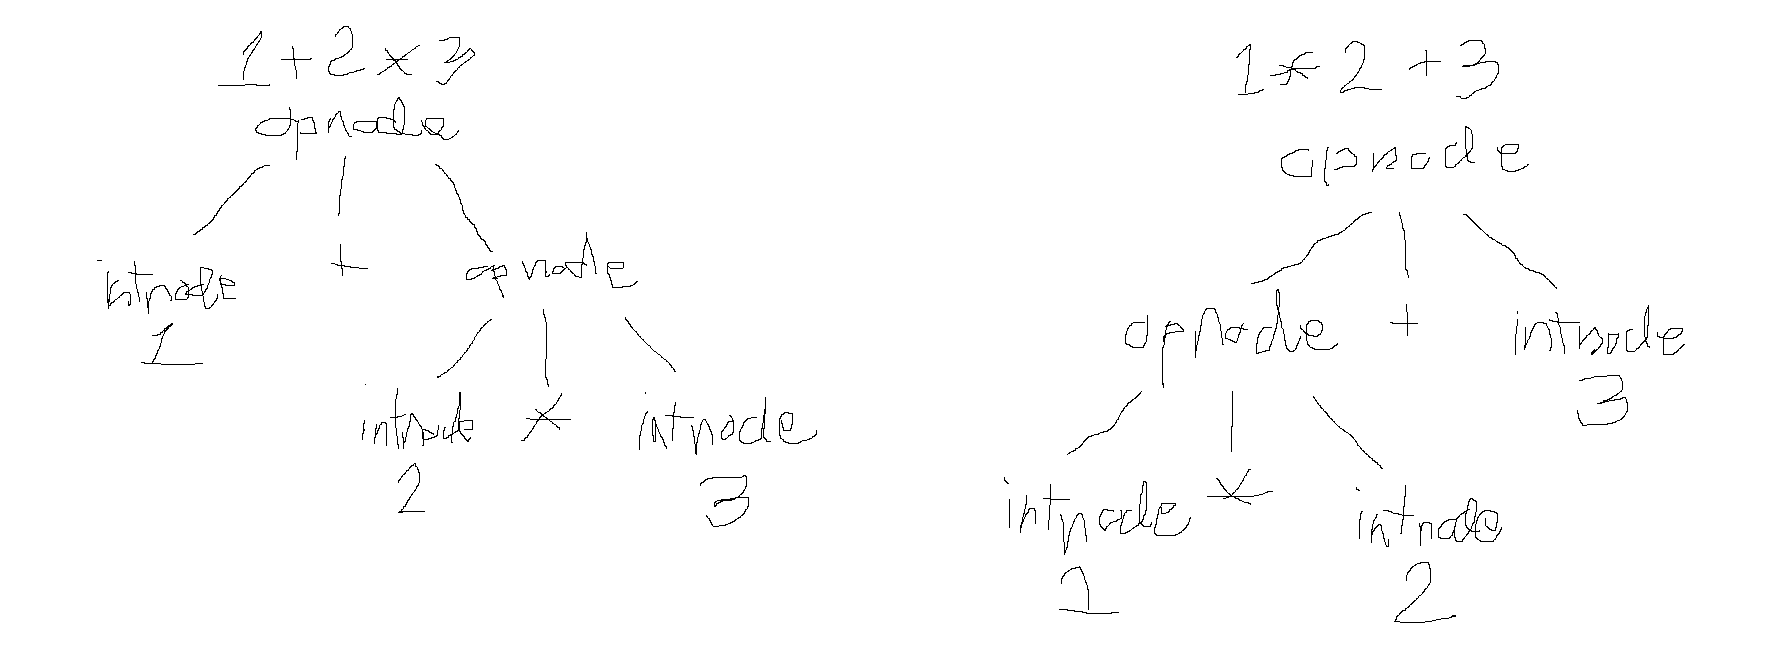 1+2*3
opnode
intnode + opnode
1
intnode * intnode
2 3
1*2+3
opnode
opnode + intnode
3
intnode * intnode
1 2